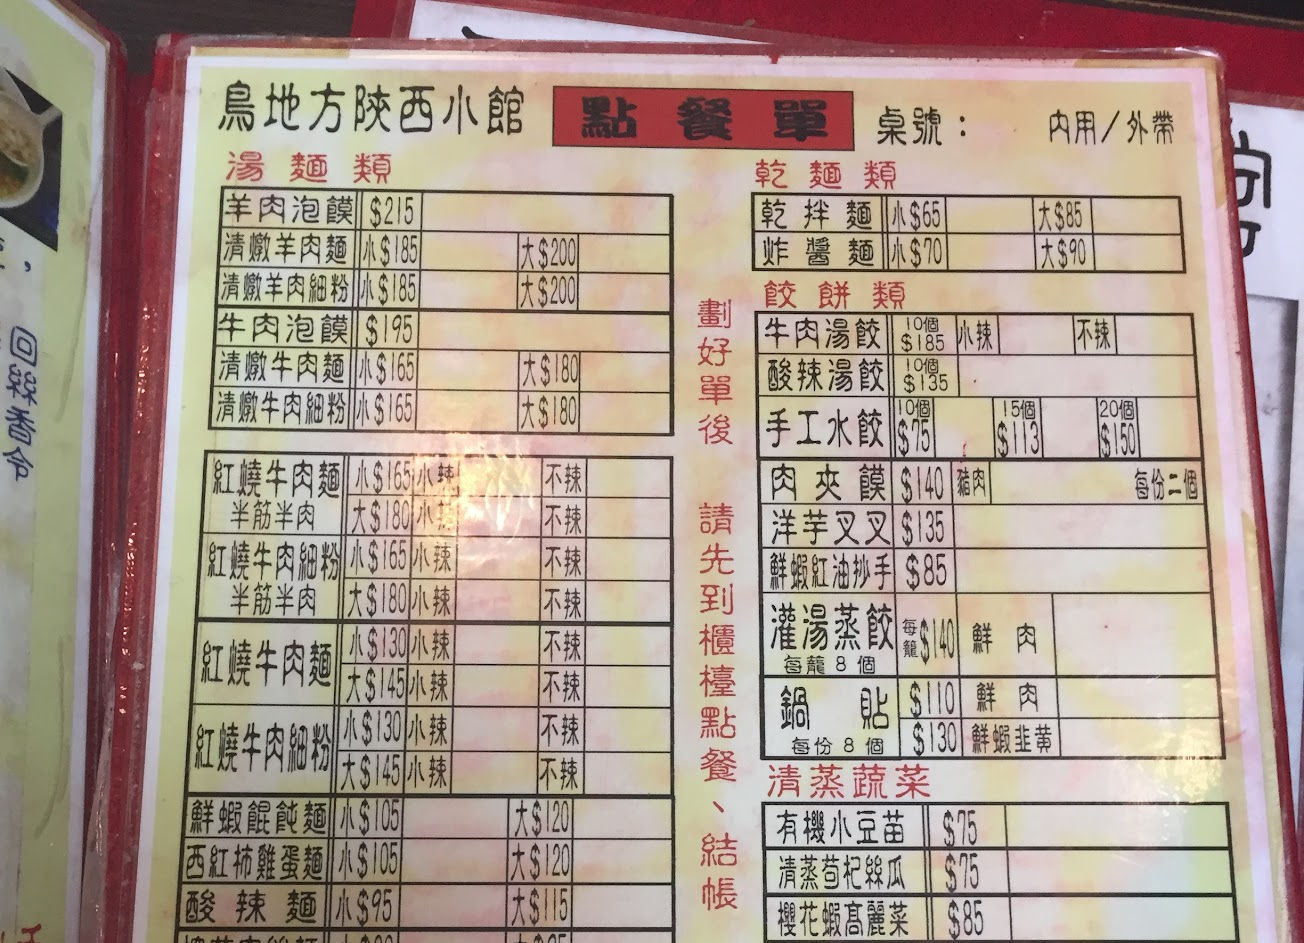 鳥地方陝西小館 點餐單 桌號： 內用/外帶
湯麵類
羊肉泡饃 $215
清燉羊肉麵 小$185 大$200
清燉羊肉細粉 小$185 大$200
牛肉泡饃 $195
清燉牛肉麵 小$165 大$180
清燉牛肉細粉 小$165 大$180
紅燒牛肉麵 小$165 小辣 不辣
半筋半肉 大$180 小辣 不辣
紅燒牛肉細粉 小$165 小辣 不辣
半筋半肉 大$180 小辣 不辣
紅燒牛肉麵 小$130 小辣 不辣
大$145 小辣 不辣
紅燒牛肉細粉 小$130 小辣 不辣
大$145 小辣 不辣
鮮蝦餛飩麵 小$105 大$120
西紅柿雞蛋麵 小$105 大$120
酸辣麵 小$95 大$115
劃好單後 請先到櫃檯點餐、結帳
乾麵類
乾拌麵 小$65 大$85
炸醬麵 小$70 大$90
餃餅類
牛肉湯餃 10個 $185 小辣 不辣
酸辣湯餃 10個 $135
手工水餃 10個 $75 15個 $113 20個 $150
肉夾饃 $140 豬肉 每份二個
洋芋叉叉 $135
鮮蝦紅油抄手 $85
灌湯蒸餃 每籠 $140 鮮肉
每籠8個
鍋貼 $110 鮮肉
每份8個 $130 鮮蝦韭黃
清蒸蔬菜
有機小豆苗 $75
清蒸茍杞絲瓜 $75
櫻花蝦高麗菜 $85
回絲香令